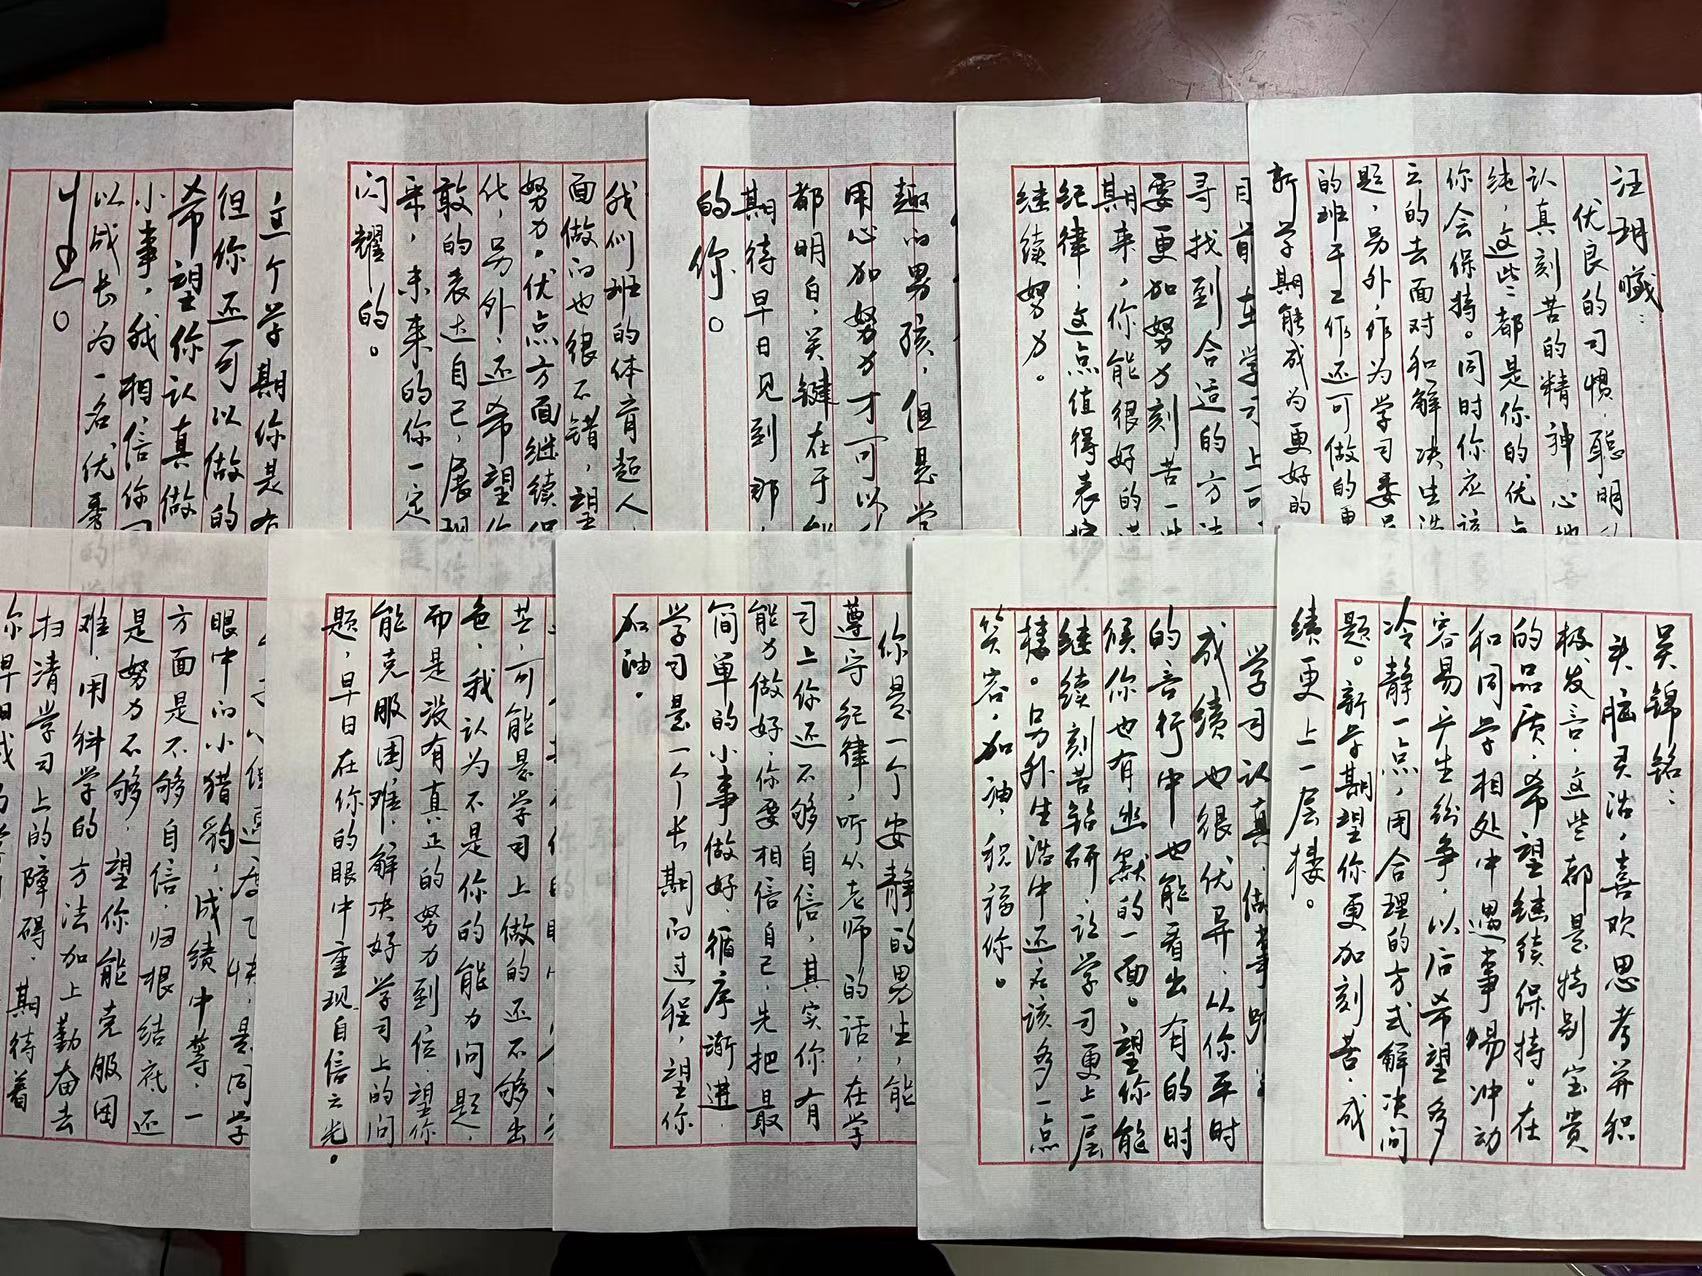 汪玥
优良的习惯，聪明
认真刻苦的精神心地
纯，这些都是你的优点
你会保持。同时你应该
立的去面对和解决生活
题，另外，作为学习委员
的班干工作还可做的更
新学期能成为更好的
目前在学习上可
寻找到合适的方法
要更加努力刻苦一些
期来，你能很好的遵
纪律，这点值得表扬
继续努力。
趣的男孩，但是学
用心加努力才可以
都明白，关键在于能
期待早日见到那
的你。
我们班的体育超人，
面做的也很不错，望
努力，优点方面继续保
化，另外，还希望你
敢的表达自己，展现
来，未来的你一定
闪耀的。
这个学期你是有
但你还可以做的
希望你认真做
小事，我相信你
以成长为一名优秀的学
生。
吴锦铭：
头脑灵活，喜欢思考并积
极发言，这些都是特别宝贵
的品质，希望继续保持。在
和同学相处中遇事易冲动
容易产生纷争，以后希望多
冷静一点，用合理的方式解决问
题。新学期望你更加刻苦，成
绩更上一层楼。
学习认真，做事
成绩也很优异，从你平时
的言行中也能看出有的时
候你也有幽默的一面。望你能
继续刻苦钻研，让学习更上一层
楼。另外生活中还应该多一点
笑容，加油，祝福你。
你是一个安静的男生，能
遵守纪律，听从老师的话，在学
习上你还不够自信，其实你有
能力做好，你要相信自己，先把最
简单的小事做好，循序渐进，
学习是一个长期的过程，望你
加油。
苦，可能是学习上做的还不够出
色，我认为不是你的能力问题，
而是没有真正的努力到位，望你
能克服困难，解决好学习上的问
题，早日在你的眼中重现自信之光。
是同学
眼中的小猎豹，成绩中等，一
方面是不够自信，归根结底还
是努力不够，望你能克服困
难，用科学的方法加上勤奋去
扫清学习上的障碍，期待着
你早日成为